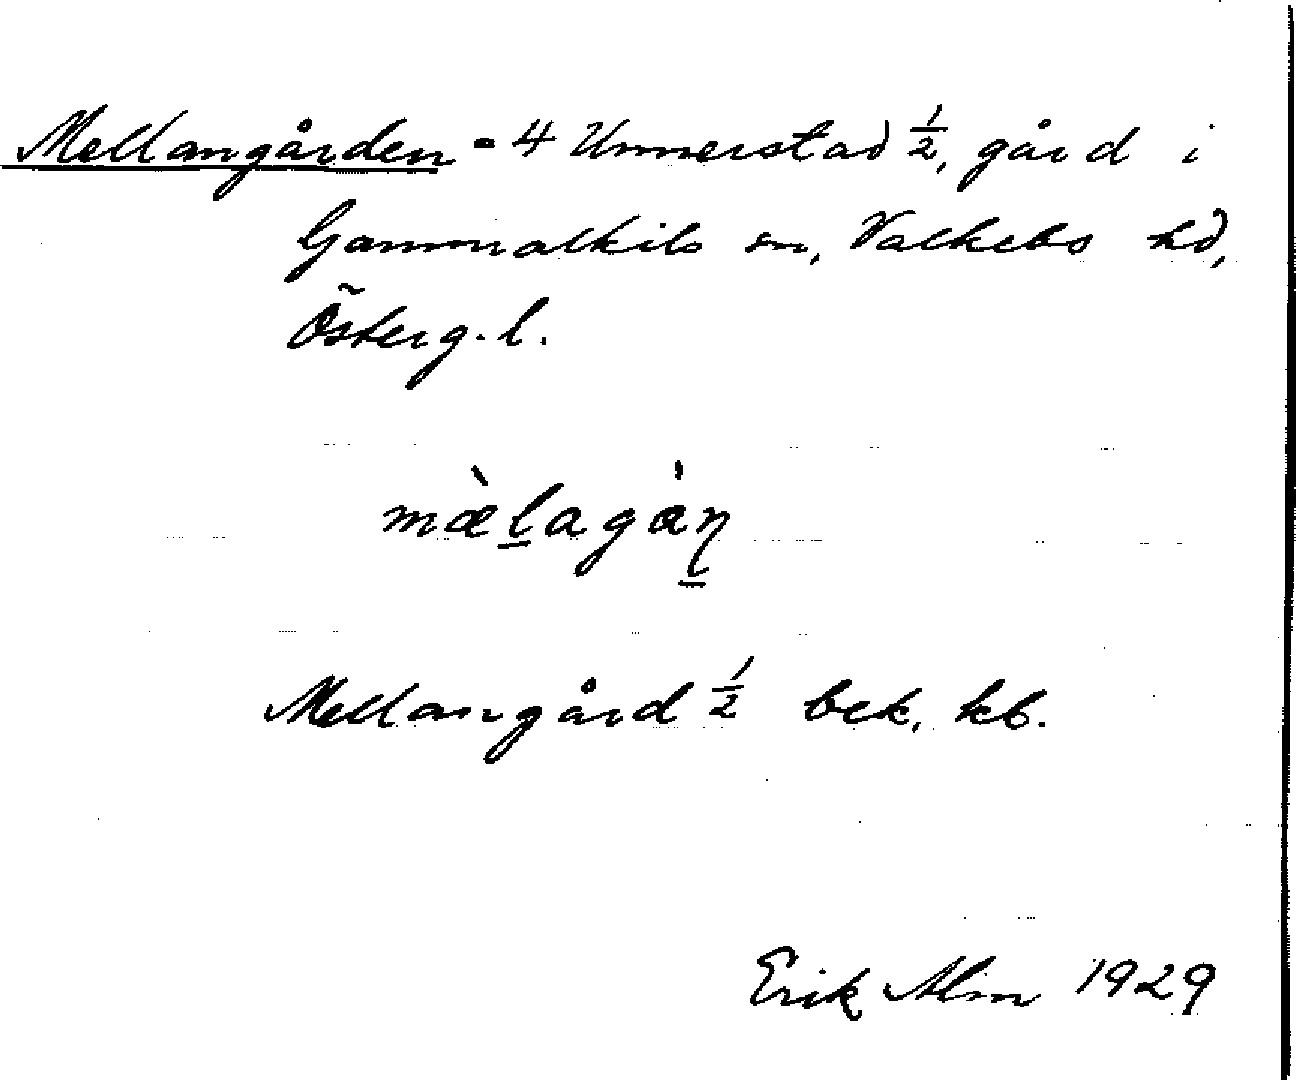 Mellangården = 4 Unnerstad 1/2, gård i
Gammalkils sn, Valkebo hd,
Österg. l.
mæ̀l̠agȧn̠
Mellangård 1/2 bek. kb.
Erik Alm 1929